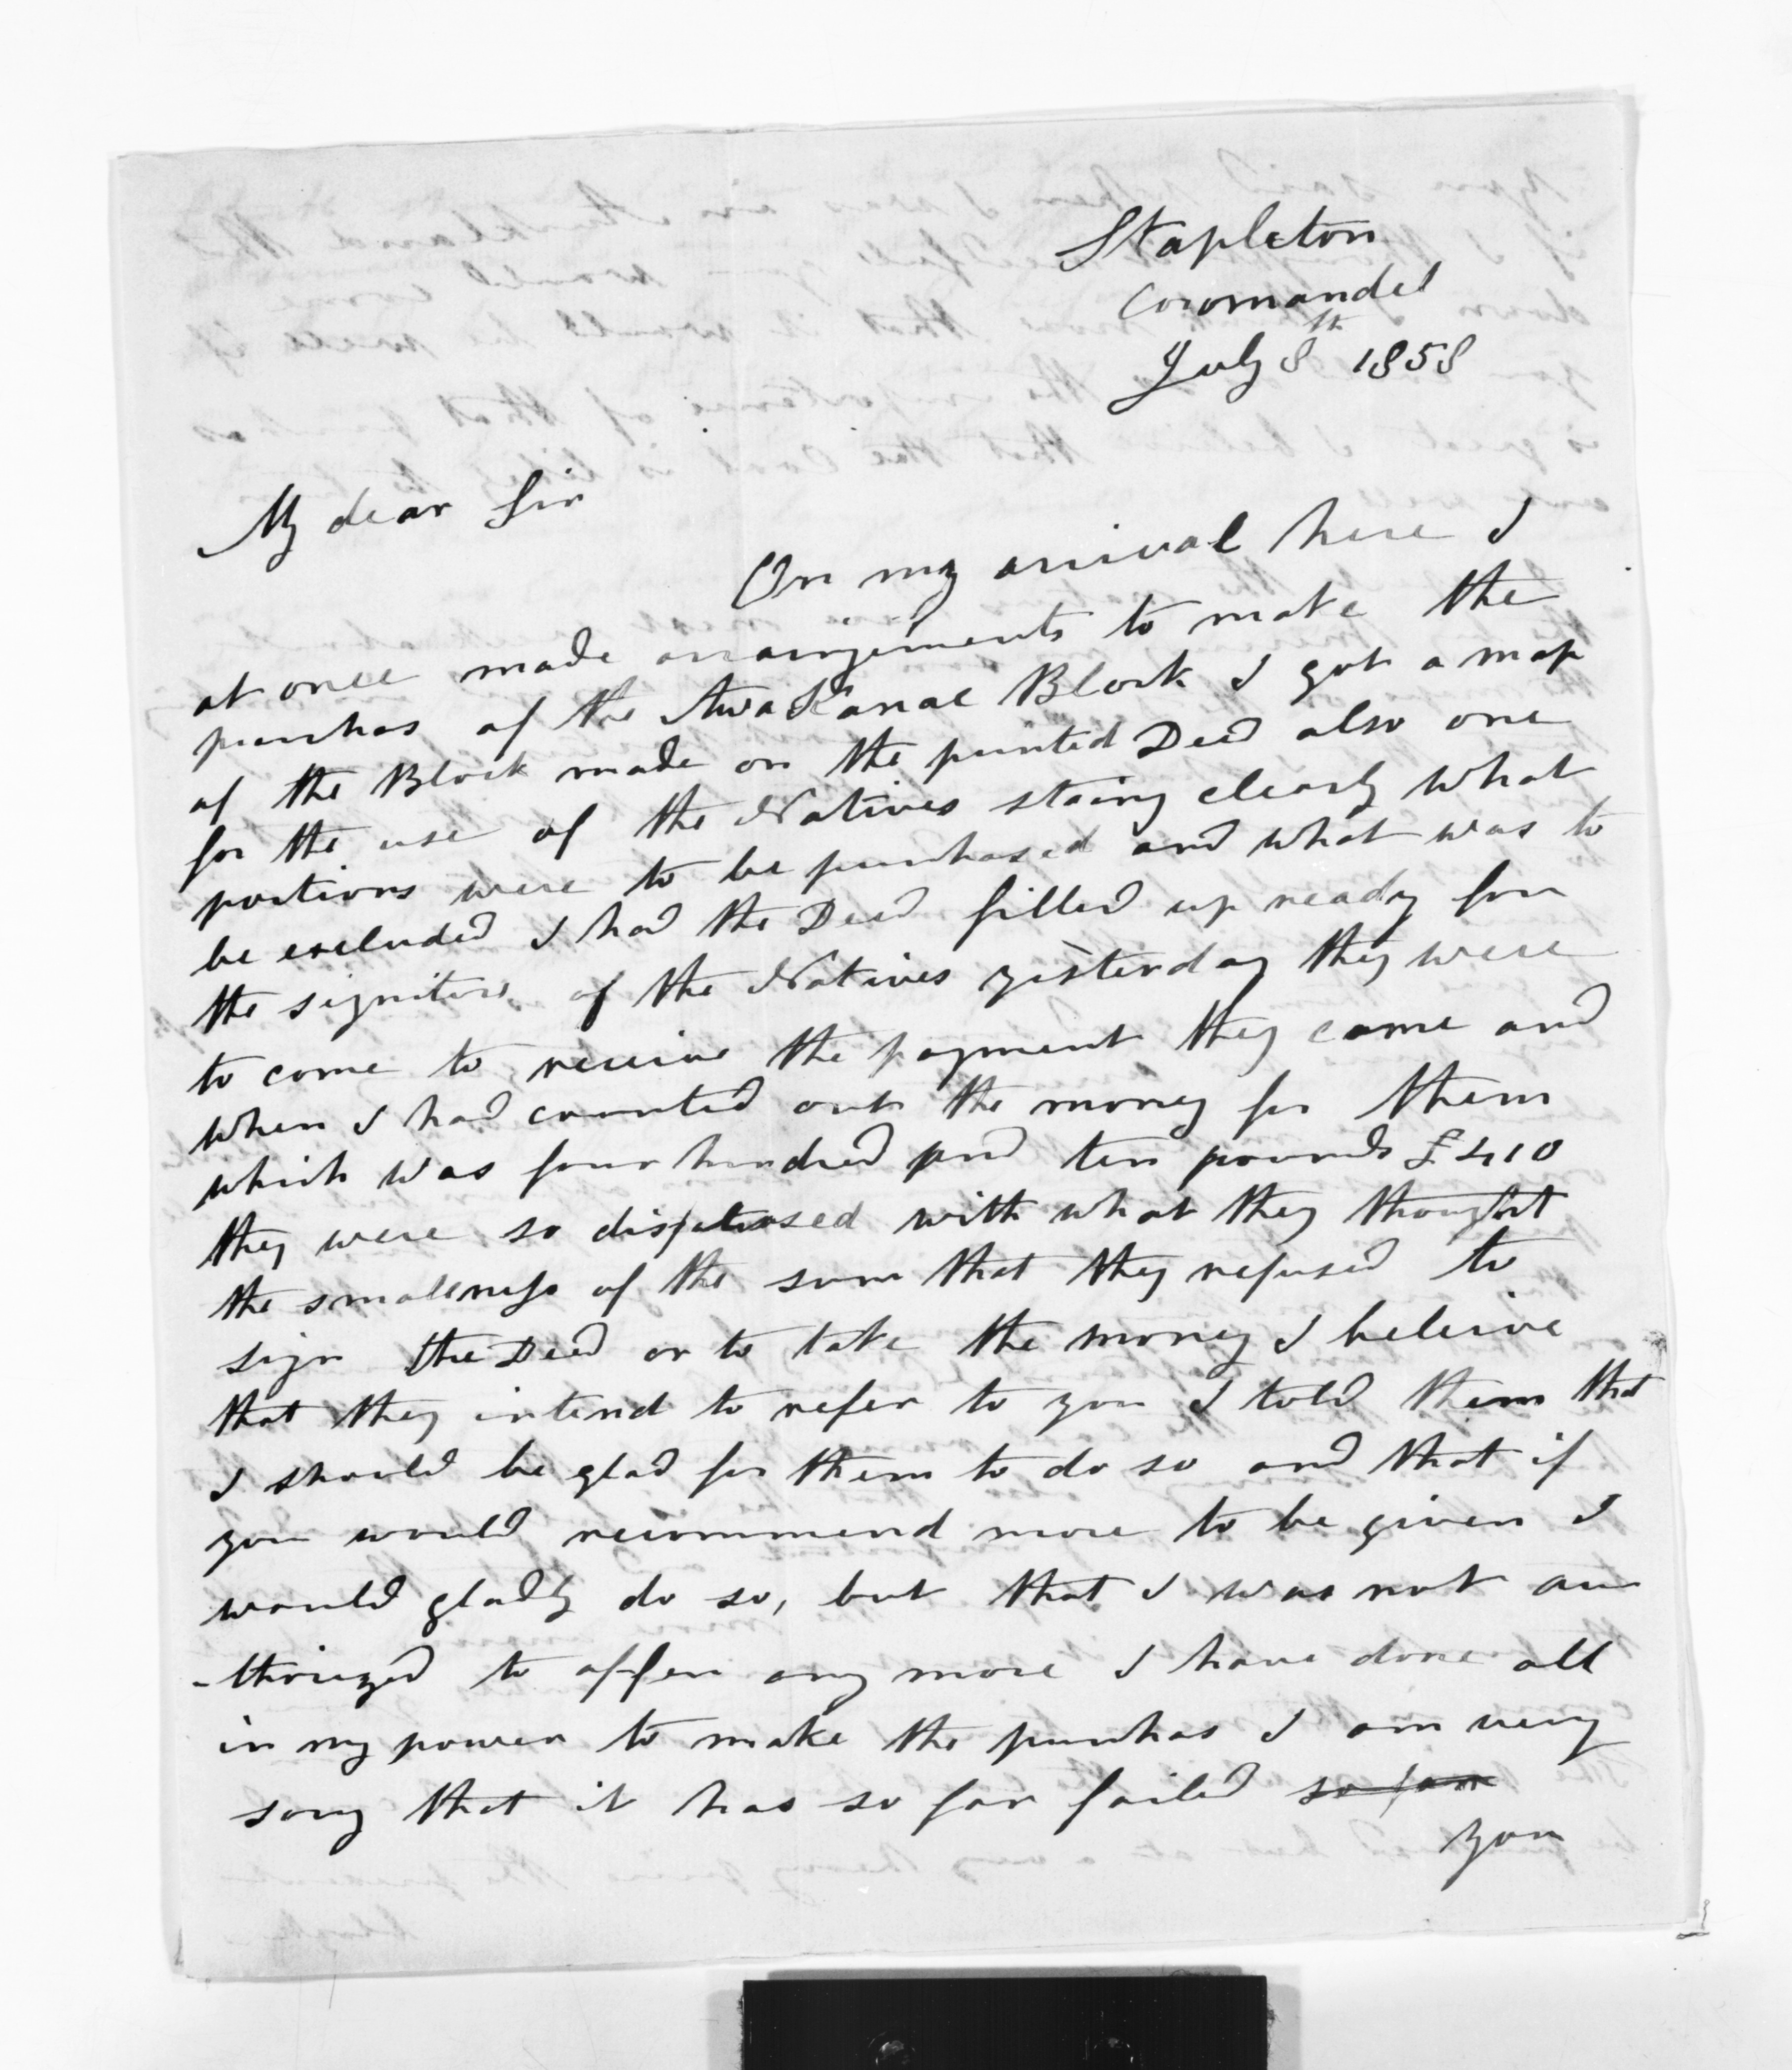 Stapleton
Coromandel
July 8th 1858
My dear Sir
On my arrival here I
at once made arrangements to make the
purchas of the Awakanae Block I got a map
of the Block made on the printed Deed also one
for the use of the Natives staing clearly what
portions were to be purchased and what was to
be excluded I had the Deed filled up ready for
the signiture of the Natives yesterday they were
to come to receive the payment they came and
when I had counted out the money for them
which was four hundred and ten pounds £410
they were so displeased with what they thought
the smallness of the sum that they refused to
sign the Deed or to take the money I beleive
that they intend to refer to you I told them that
I should be glad for them to do so and that if
you would recommend more to be given I
would gladly do so, but that I was not au
-thorized to offer any more I have done all
in my power to make the purchas I am very
sorry that it has so far failed so far
you